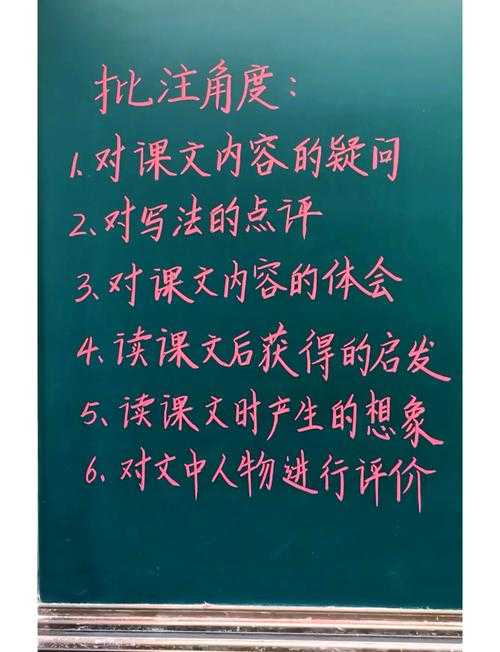 批注角度：
1.对课文内容的疑问
2、对写法的点评
3、对课文内容的体会
4、读课文后获得的启发
5、读课文时产生的想象
6、对文中人物进行评价